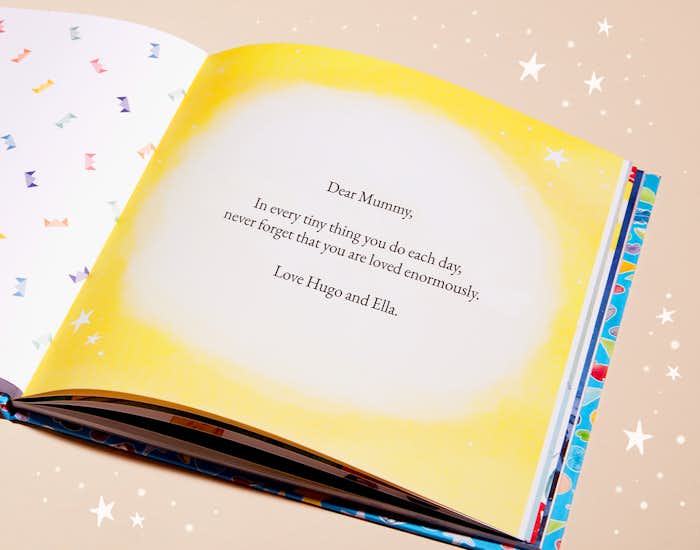 Dear Mummy,
In every tiny thing you do each day,
never forget that you are loved enormously.
Love Hugo and Ella.